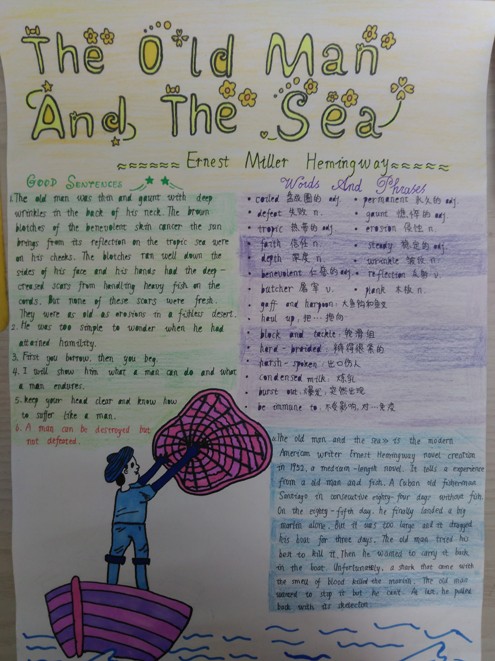 The Old Man
And The Sea
Ernest Miller Hemingway
GOOD SENTENCES
1. The old man was thin and gaunt with deep
wrinkles in the back of his neck. The brown
blotches of the benevolent skin cancer the sun
brings from its reflection on the tropic sea were
on his cheeks. The blotches ran well down the
sides of his face and his hands had the deep-
creased scars from handling heavy fish on the
cords. But none of these scars were fresh.
They were as old as erosions in a fishless desert.
2. He was too simple to wonder when he had
attained humility.
3. First you borrow, then you beg.
4. I will show him what a man can do and what
a man endures.
5. Keep your head clear and know how
to suffer like a man.
6. A man can be destroyed but
not defeated.
Words And Phrases
• coiled 盘成圈的 adj.
• defeat 失败 n.
• tropic 热带的 adj.
• faith 信任 n.
• depth 深度 n.
• benevolent 仁慈的 adj.
• butcher 屠宰 v.
• permanent 永久的 adj.
• gaunt 憔悴的 adj.
• erosion 侵蚀 n.
• steady 稳定的 adj.
• wrinkle 皱纹 n.
• reflection 反射
• plank 木板 n.
• gaff and harpoon: 大鱼钩和鱼叉
• haul up, 把…拖向
• block and tackle, 轮滑组
• hard-braided: 编得很紧的
• harsh-spoken: 出口伤人
• condensed milk, 炼乳
• burst out, 爆发, 突然出现
• be immune to, 不受影响, 对…免疫
The old man and the sea» is the modern
American writer Ernest Hemingway novel creation
in 1952, a medium-length novel. It tells a experience
from a old man and fish. A Cuban old fisherman
Santiago in consecutive eighty-four days without fish.
On the eighty-fifth day, he finally landed a big
marlin alone. But it was too large and it dragged
his boat for three days. The old man tried his
best to kill it. Then he wanted to carry it back
in the boat. Unfortunately, a shark that came with
the smell of blood killed the marlin. The old man
wanted to stop it but he can't. At last, he pulled
back with its skeleton.